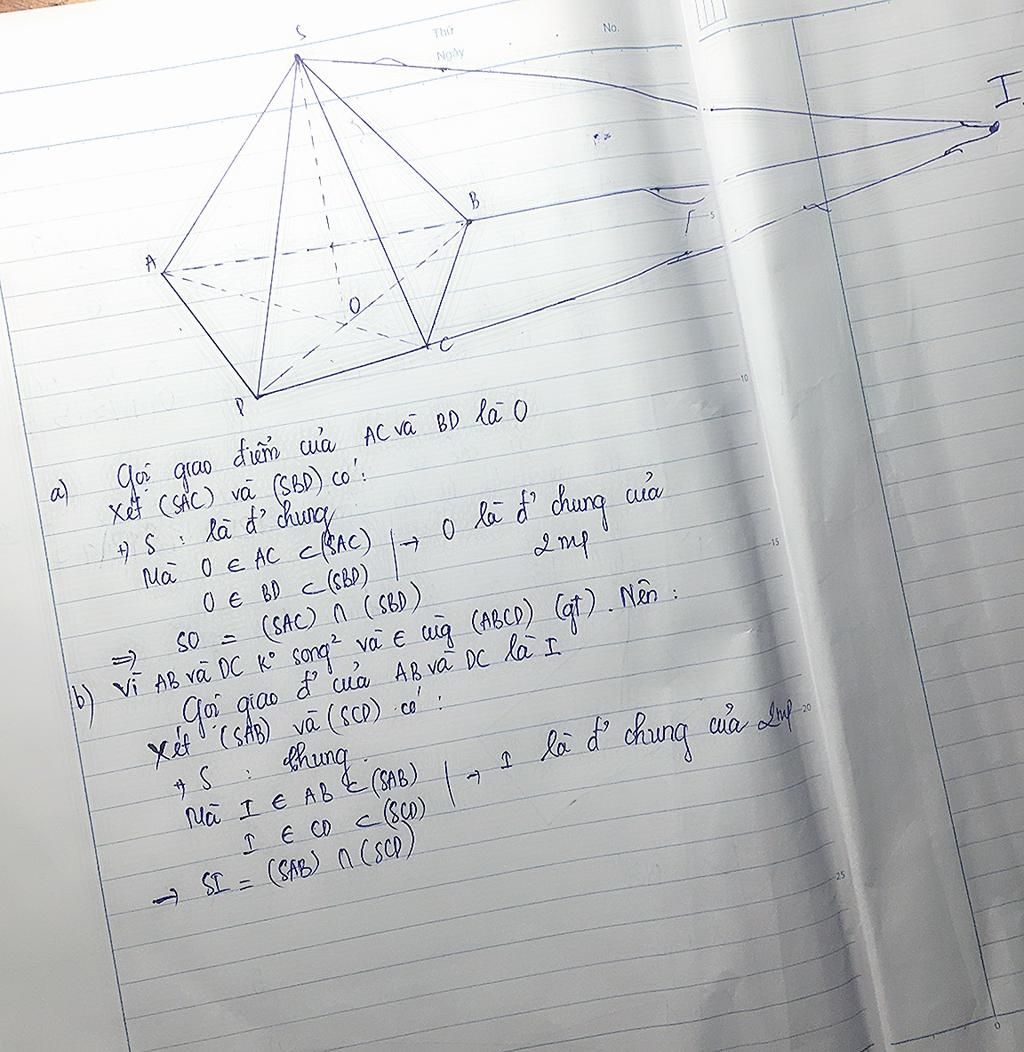 Thứ
Ngày
No.
S
I
B
A
O
C
D
5
10
15
20
25
a) Gọi giao điểm của AC và BD là O
Xét (SAC) và (SBD) có:
+) S : là đ' chung
Mà O ∈ AC ⊂ (SAC) | → O là đ' chung của
O ∈ BD ⊂ (SBD) 2mp
⇒ SO = (SAC) ∩ (SBD)
b) Vì AB và DC k° song² và ∈ cùg (ABCD) (gt). Nên :
Gọi giao đ' của AB và DC là I
Xét (SAB) và (SCD) có :
+) S : chung
Mà I ∈ AB ⊂ (SAB) | → I là đ' chung của 2mp
I ∈ CD ⊂ (SCD)
→ SI = (SAB) ∩ (SCD)